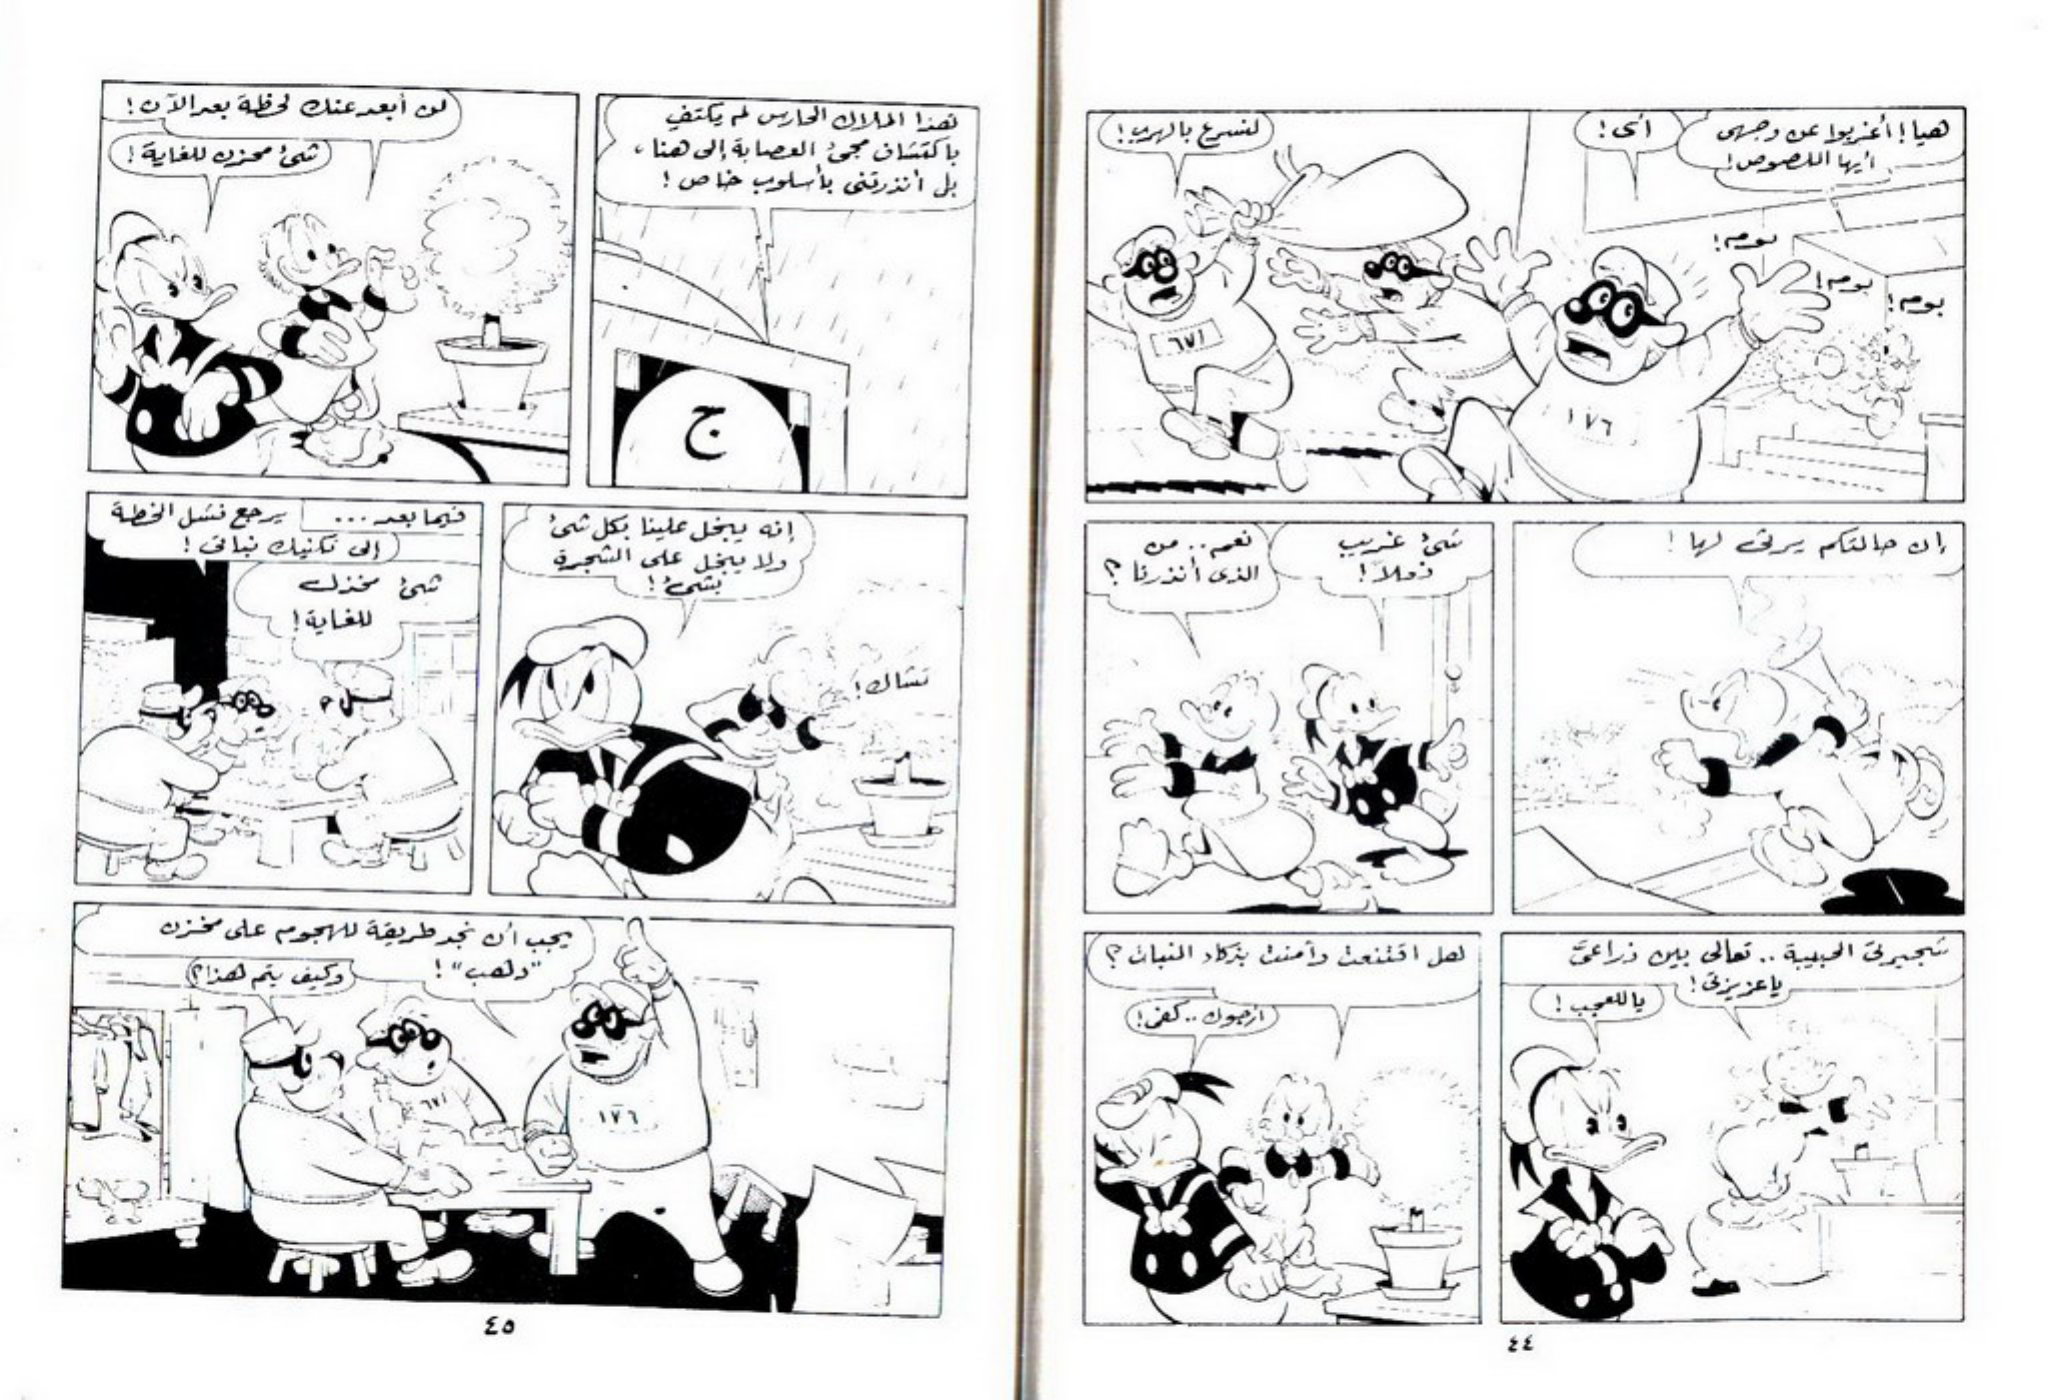 هيا! أغربوا عن وجهى
أيها اللصوص!
آى!
لنسرع بالهرب!
بوم!
بوم!
بوم!
٦٧١
١٧٦
إن حالتكم يرثى لها!
شئ غريب
فعلاً!
نعم.. من
الذى أنذرنا؟
شجيرتى الحبيبة.. تعالى بين ذراعىّ
يا عزيزتى!
ياللعجب!
هل اقتنعت وآمنت بذكاء النبات؟
أرجوك.. كفى!
٤٤
هذا الملاك الحارس لم يكتفِ
باكتشاف مجئ العصابة إلى هنا،
بل أنذرتنى بأسلوب خاص!
ج
لن أبعد عنك لحظة بعد الآن!
شئ محزن للغاية!
إنه يبخل علينا بكل شئ
ولا يبخل على الشجرة
بشئ!
تشاك!
فيما بعد...
يرجع فشل الخطة
إلى تكنيك نباتى!
شئ مخزٍ
للغاية!
يجب أن نجد طريقة للهجوم على مخزن
"دهب"!
وكيف يتم هذا؟
٦٧١
١٧٦
٤٥